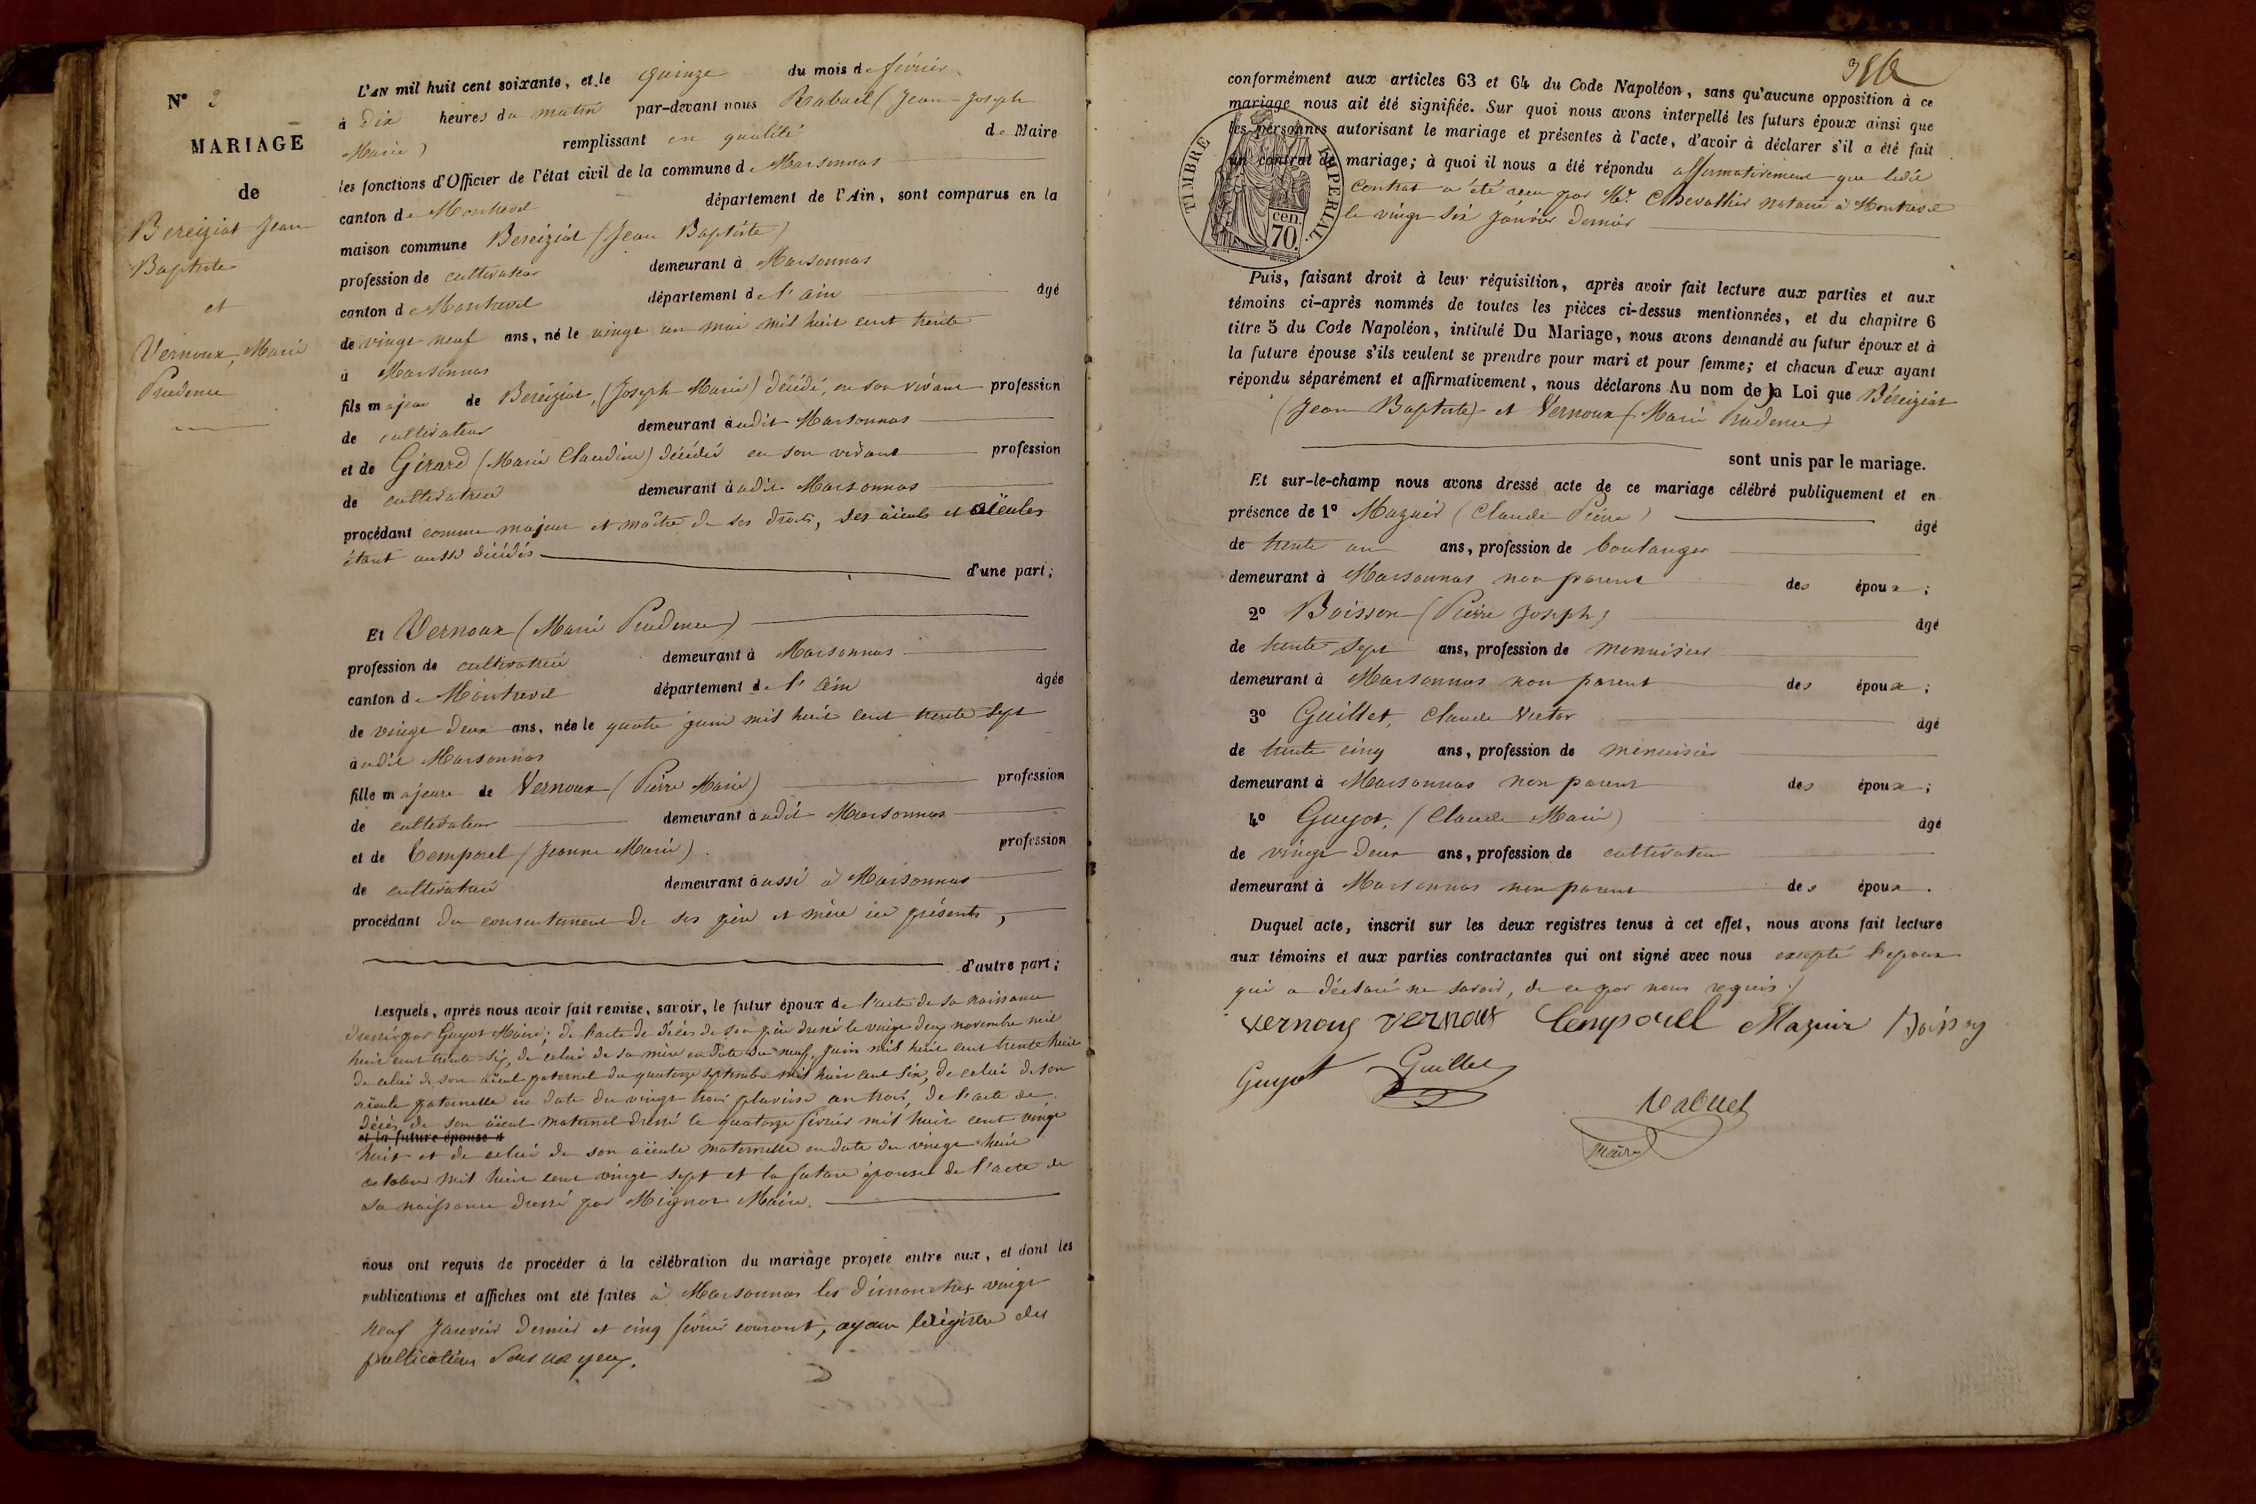 N° 2
MARIAGE
de
Bereiziat Jean
Baptiste
et
Vernoux, Marie
Prudence
L'AN mil huit cent soixante, et le quinze du mois de février
à dix heures du matin par-devant nous Rabuel (Jean Joseph
Marie) remplissant en qualité de Maire
les fonctions d'Officier de l'état civil de la commune de Marsonnas
canton de Montrevel département de l'Ain, sont comparus en la
maison commune Bereiziat (Jean Baptiste)
profession de cultivateur demeurant à Marsonnas
canton de Montrevel département de l'ain âgé
de vingt neuf ans, né le vingt un mai mil huit cent trente
à Marsonnas
fils majeur de Bereiziat, (Joseph Marie) décédé, en son vivant profession
de cultivateur demeurant audit Marsonnas
et de Girard (Marie Claudine) décédée en son vivant profession
de cultivatrice demeurant à udit Marsonnas
procédant comme majeur et maître de ses droits, ses aïeuls et aïeules
étant aussi décédés d'une part;
Et Vernoux (Marie Prudence)
profession de cultivatrice demeurant à Marsonnas
canton de Montrevel département de l'ain âgée
de vingt deux ans, née le quatre juin mil huit cent trente sept
à udit Marsonnas
fille majeure de Vernoux (Pierre Marie) profession
de cultivateur demeurant à udit Marsonnas
et de Temporel (Jeanne Marie) profession
de cultivatrice demeurant à ussi à Marsonnas
procédant du consentement de ses père et mère ici présents,
d'autre part;
Lesquels, après nous avoir fait remise, savoir, le futur époux de l'acte de sa naissance
dressé par Guyot Maire; de l'acte de décès de son père dressé le vingt deux novembre mil
huit cent trente six, de celui de sa mère en date du neuf juin mil huit cent trente huit
de celui de son aïeul paternel du quatorze septembre mil huit cent six, de celui de son
aïeule paternelle en date du vingt trois pluviose an trois, de l'acte de
décès de son aïeul maternel dressé le quatorze février mil huit cent vingt
et la future épouse d
huit et de celui de son aïeule maternelle en date du vingt huit
octobre mil huit cent vingt sept et la future épouse de l'acte de
sa naissance dressé par Mignot Maire.
nous ont requis de procéder à la célébration du mariage projeté entre eux, et dont les
publications et affiches ont été faites à Marsonnas les dimanches vingt
neuf Janvier dernier et cinq février courant, ayant le régistre des
publications sous nos yeux.
conformément aux articles 63 et 64 du Code Napoléon, sans qu'aucune opposition à ce
mariage nous ait été signifiée. Sur quoi nous avons interpellé les futurs époux ainsi que
les personnes autorisant le mariage et présentes à l'acte, d'avoir à déclarer s'il a été fait
un contrat de mariage; à quoi il nous a été répondu affirmativement que ledit
contrat a été reçu par Me. Chevallier notaire à Montrevel
le vingt six Janvier dernier
TIMBRE IMPÉRIAL.
cen.
70.
Puis, faisant droit à leur réquisition, après avoir fait lecture aux parties et aux
témoins ci-après nommés de toutes les pièces ci-dessus mentionnées, et du chapitre 6
titre 5 du Code Napoléon, intitulé Du Mariage, nous avons demandé au futur époux et à
la future épouse s'ils veulent se prendre pour mari et pour femme; et chacun d'eux ayant
répondu séparément et affirmativement, nous déclarons Au nom de la Loi que Béreiziat
(Jean Baptiste) et Vernoux (Marie Prudence)
sont unis par le mariage.
Et sur-le-champ nous avons dressé acte de ce mariage célébré publiquement et en
présence de 1° Mazuir (Claude Pierre) âgé
de trente un ans, profession de boulanger
demeurant à Marsonnas non parent des époux;
2° Boisson (Pierre Joseph) âgé
de trente sept ans, profession de menuisier
demeurant à Marsonnas non parent des époux;
3° Guillet, Claude Victor âgé
de trente cinq ans, profession de menuisier
demeurant à Marsonnas non parent des époux;
4° Guyot, (Claude Marie) âgé
de vingt deux ans, profession de cultivateur
demeurant à Marsonnas non parent des époux.
Duquel acte, inscrit sur les deux registres tenus à cet effet, nous avons fait lecture
aux témoins et aux parties contractantes qui ont signé avec nous excepté l'époux
qui a déclaré ne savoir, de ce par nous requis./
Vernoux Vernoux Temporel Mazuir Boisson
Guyot Guillet
Rabuel
Maire